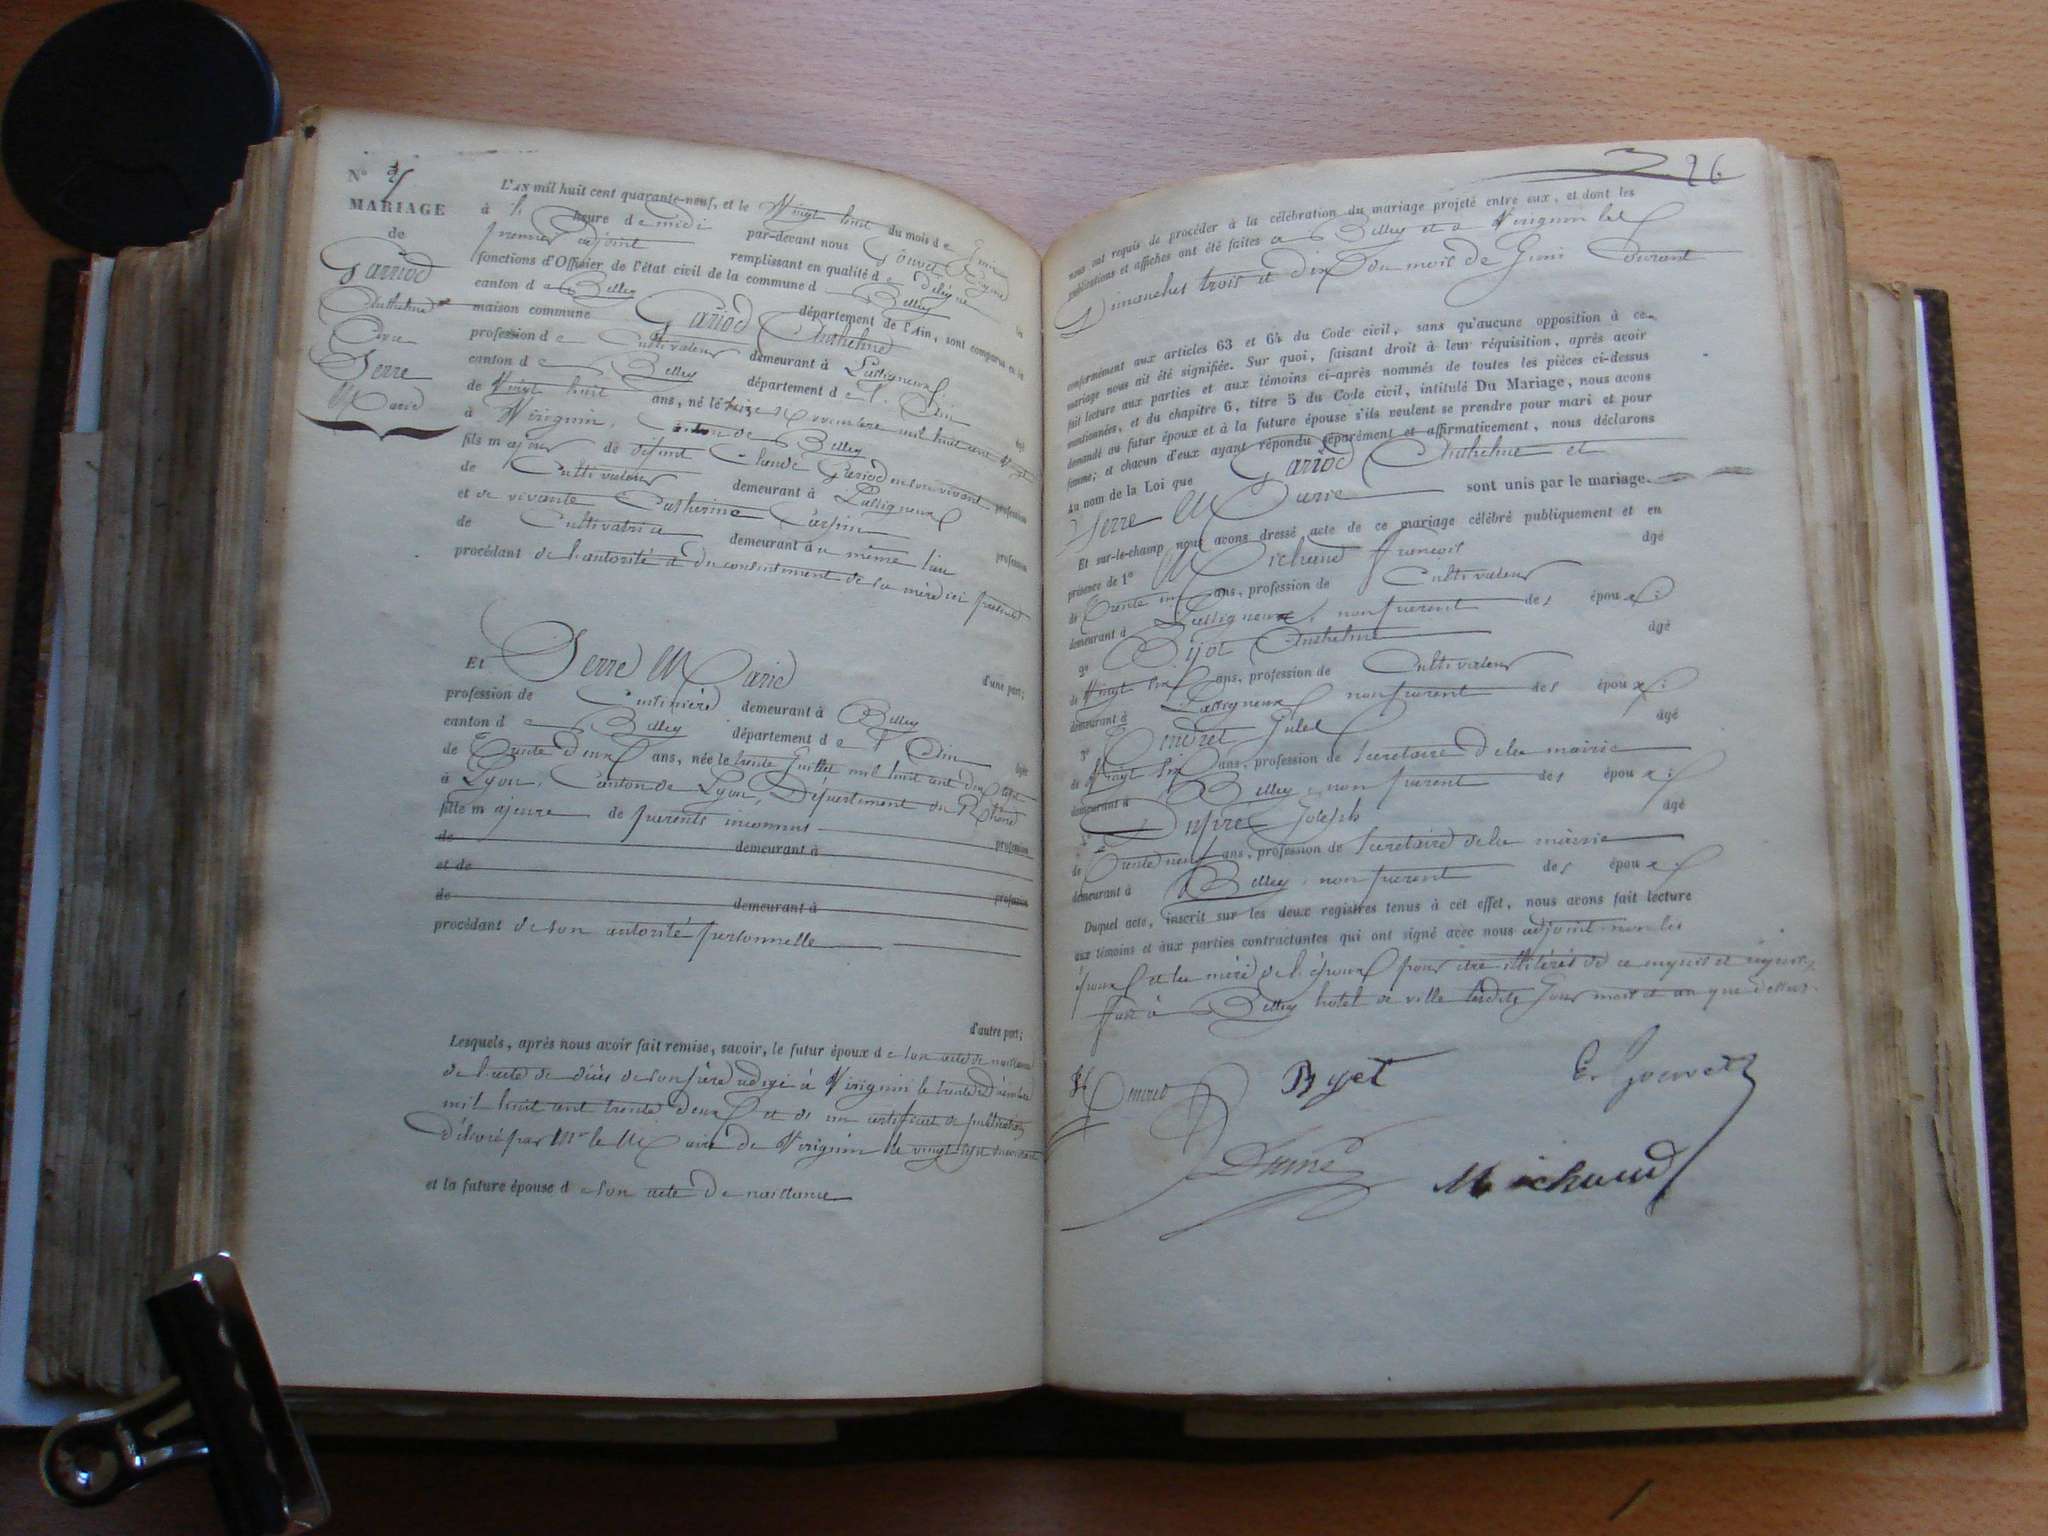 N°
MARIAGE
de
Gariod
Anthelme
Avec
Serre
Marie
L'AN mil huit cent quarante-neuf, et le Vingt huit du mois de Juin
à heure de midi par-devant nous Gouvet
premier adjoint remplissant en qualité de délégué les
fonctions d'Officier de l'état civil de la commune de Belley
canton de Belley département de l'Ain, sont comparus en la
maison commune Gariod Anthelme
profession de Cultivateur demeurant à Lassigneux
canton de Belley département de l'Ain âgé
de Vingt huit ans, né le seize Novembre mil huit cent vingt
à Virignin, Canton de Belley
fils majeur de défunt Claude Gariod en son vivant profession
de Cultivateur demeurant à Lassigneux
et de vivante Catherine Carpin profession
de Cultivatrice demeurant au même lieu
procédant de l'autorité et du consentement de sa mère ici présente
d'une part;
Et Serre Marie
profession de Cuisinière demeurant à Belley
canton de Belley département de l'Ain âgée
de Trente deux ans, née le trente Juillet mil huit cent dix sept
à Lyon, Canton de Lyon, Département du Rhône
fille majeure de parents inconnus profession
de demeurant à
et de profession
de demeurant à
procédant de son autorité personnelle
d'autre part;
Lesquels, après nous avoir fait remise, savoir, le futur époux de son acte de naissance
de l'acte de décès de son père rédigé à Virignin le trente décembre
mil huit cent trente deux et de un certificat de publication
délivré par Mr le Maire de Virignin le vingt sept du courant
et la future épouse de son acte de naissance
26.
nous ont requis de procéder à la célébration du mariage projeté entre eux, et dont les
publications et affiches ont été faites à Belley et à Virignin les
Dimanches trois et dix du mois de Juin Courant
conformément aux articles 63 et 64 du Code civil, sans qu'aucune opposition à ce
mariage nous ait été signifiée. Sur quoi, faisant droit à leur réquisition, après avoir
fait lecture aux parties et aux témoins ci-après nommés de toutes les pièces ci-dessus
mentionnées, et du chapitre 6, titre 5 du Code civil, intitulé Du Mariage, nous avons
demandé au futur époux et à la future épouse s'ils veulent se prendre pour mari et pour
femme; et chacun d'eux ayant répondu séparément et affirmativement, nous déclarons
Au nom de la Loi que Gariod Anthelme et
Serre Marie sont unis par le mariage.
Et sur-le-champ nous avons dressé acte de ce mariage célébré publiquement et en
présence de 1° Michaud françois âgé
de Trente ans, profession de Cultivateur
demeurant à Lassigneux, non parent des époux;
2° Bijot Anthelme âgé
de Vingt six ans, profession de Cultivateur
demeurant à Lassigneux non parent des époux;
3° Jules âgé
de Vingt six ans, profession de Secretaire de la mairie
demeurant à Belley, non parent des époux;
4° Joseph âgé
de Trente neuf ans, profession de Secretaire de la mairie
demeurant à Belley, non parent des époux
Duquel acte, inscrit sur les deux registres tenus à cet effet, nous avons fait lecture
aux témoins et aux parties contractantes qui ont signé avec nous adjoint non les
époux et la mère de l'époux pour être illitérés de ce enquis et requis.
Fait à Belley hotel de ville lesdits Jour mois et an que dessus.
Byet
E. Gouvet
Michaud